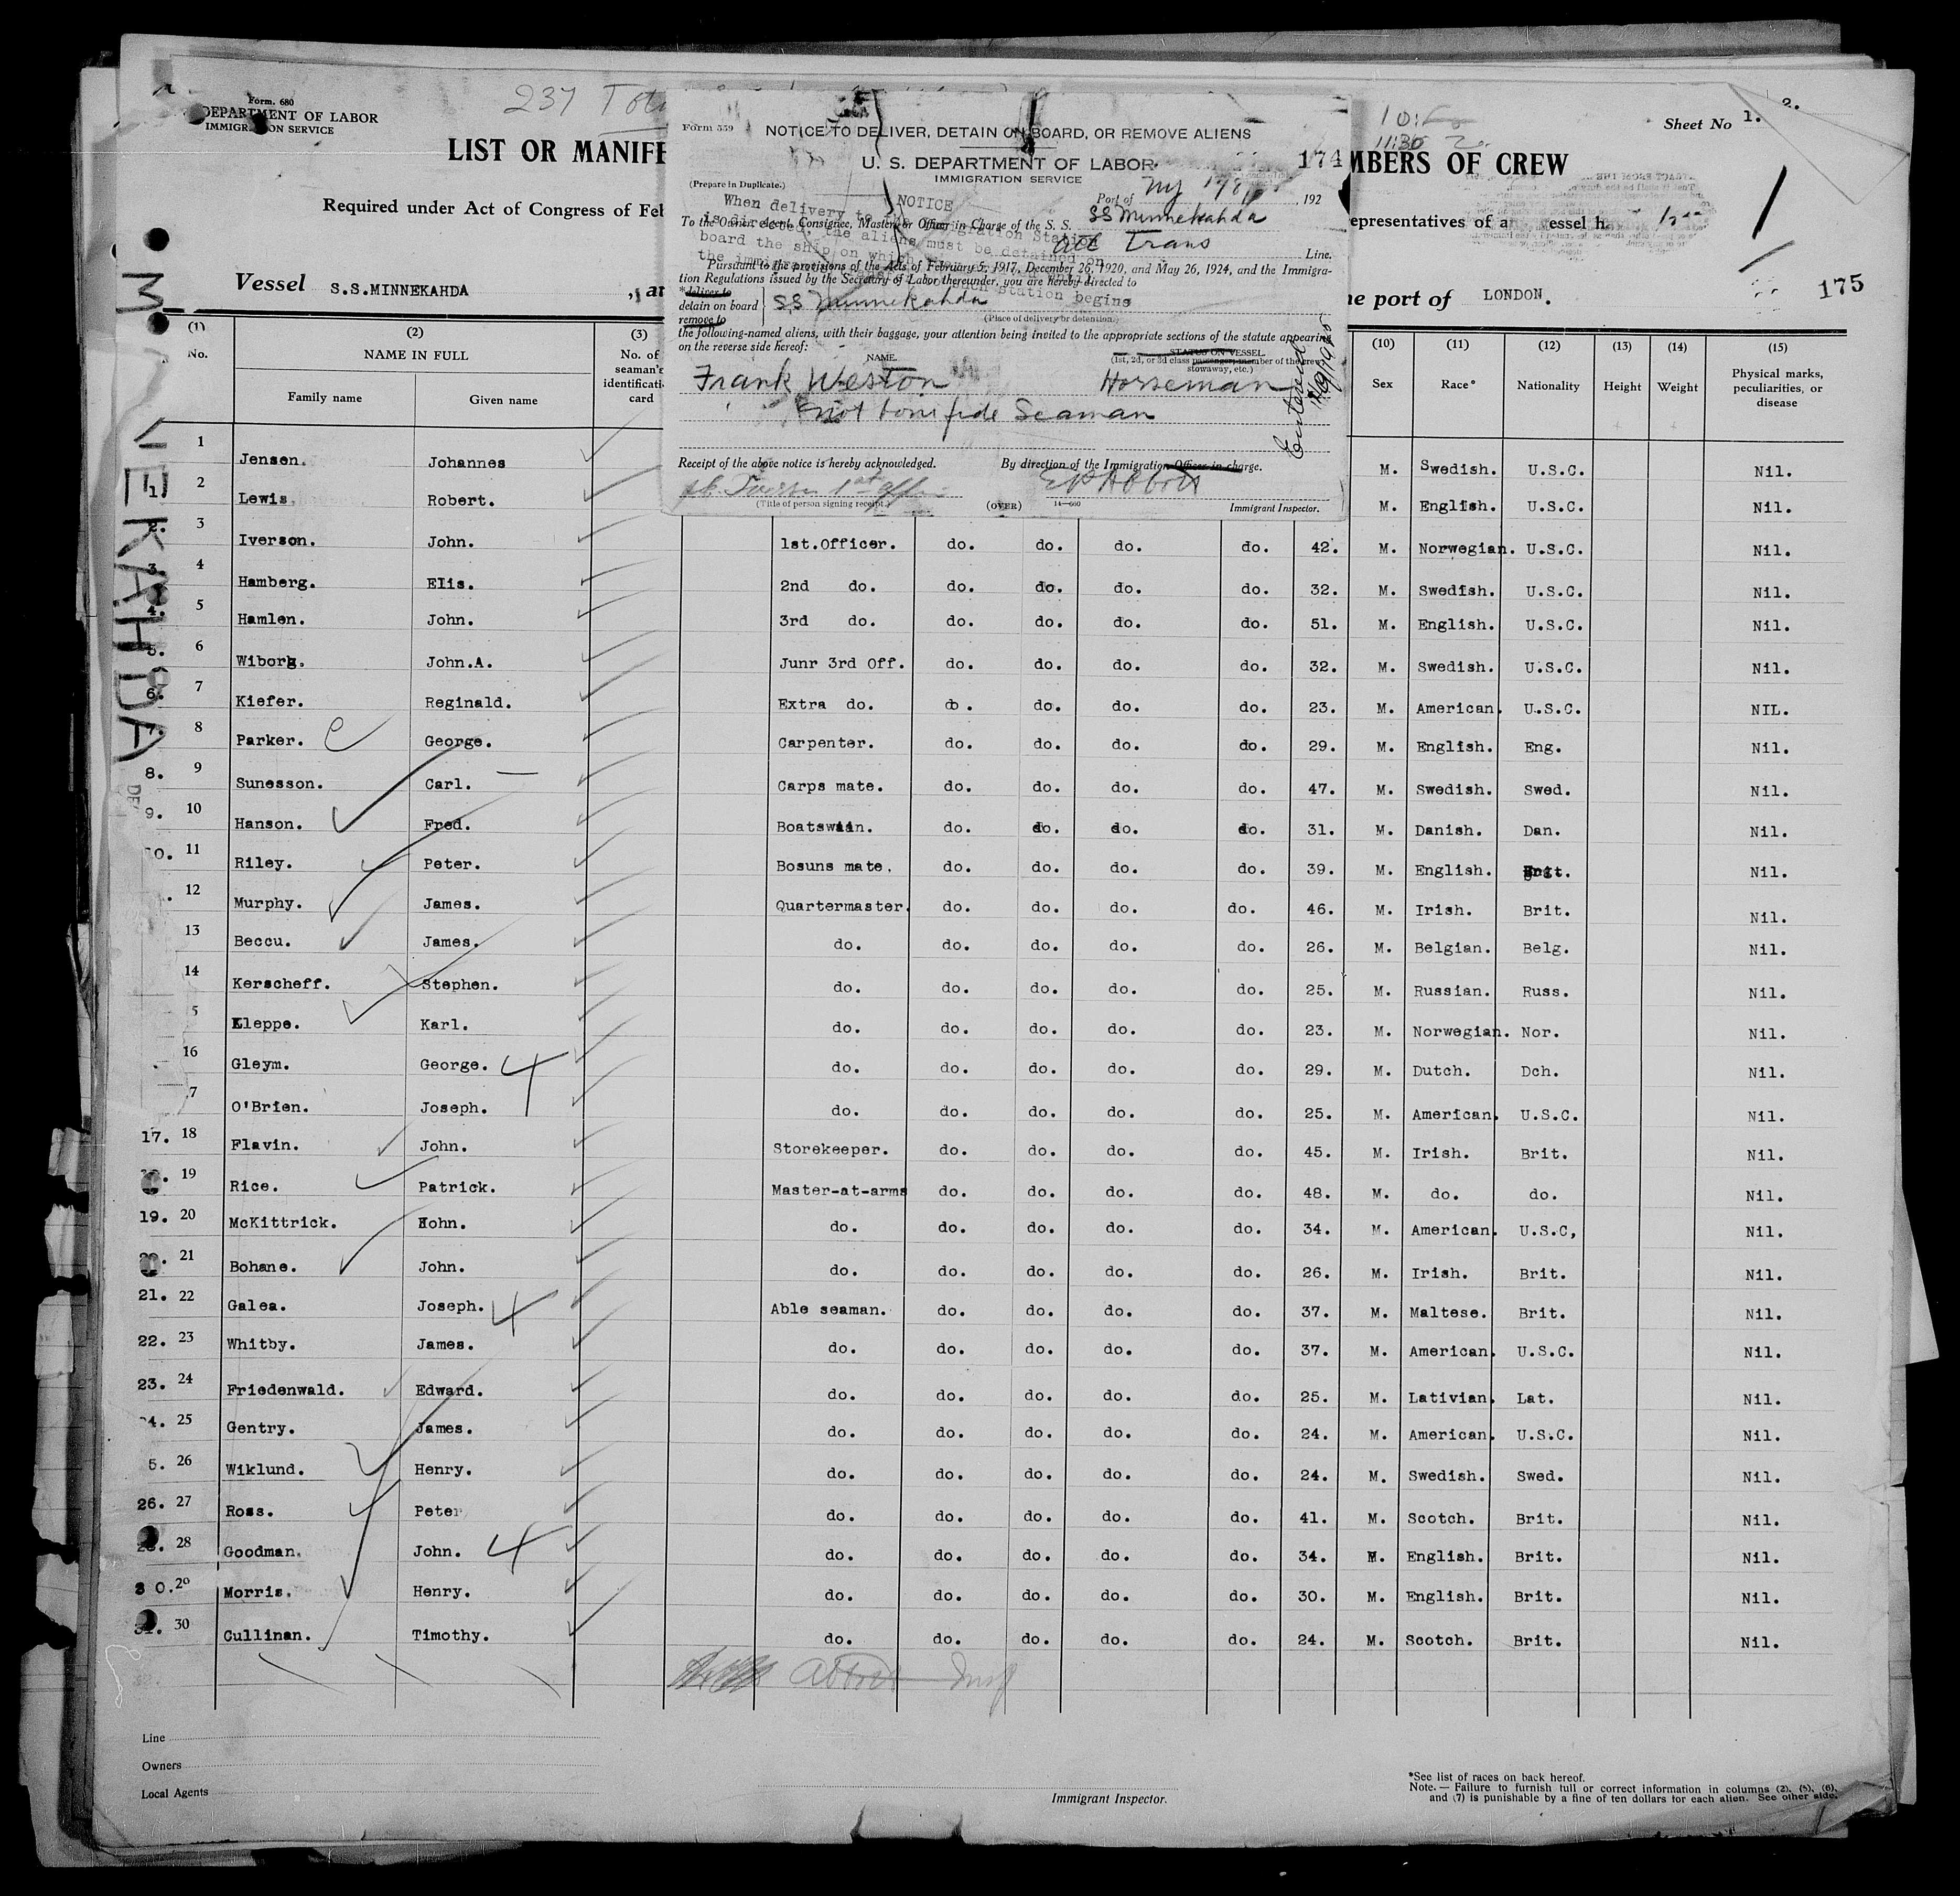 Form. 680
DEPARTMENT OF LABOR
IMMIGRATION SERVICE
237
LIST OR MANIFE
MBERS OF CREW
Sheet No 1. 2.
11:30
Required under Act of Congress of Feb
epresentatives of a vessel h
Vessel S.S.MINNEKAHDA
, a
he port of LONDON.
175
MINNEKAHDA
Form 559
NOTICE TO DELIVER, DETAIN ON BOARD, OR REMOVE ALIENS
U. S. DEPARTMENT OF LABOR
174
IMMIGRATION SERVICE
(Prepare in Duplicate.)
Port of NY , 192
NOTICE
When delivery to the Immigration Station
is directed, the aliens must be detained on
board the ship on which
the immigration station begins
To the Owner, Agent, Consignee, Master, or Officer in Charge of the S. S. SS Minnekahda
Atl Trans Line.
Pursuant to the provisions of the Acts of February 5, 1917, December 26, 1920, and May 26, 1924, and the Immigra-
tion Regulations issued by the Secretary of Labor thereunder, you are hereby directed to
*deliver to
detain on board SS Minnekahda
remove to
(Place of delivery or detention.)
the following-named aliens, with their baggage, your attention being invited to the appropriate sections of the statute appearing
on the reverse side hereof:
NAME. STATUS ON VESSEL
(1st, 2d, or 3d class passenger, member of the crew, stowaway, etc.)
Frank Weston Horseman
not bonifide Seaman
Entered
Receipt of the above notice is hereby acknowledged. By direction of the Immigration Officer in charge.
1st
(Title of person signing receipt.) (OVER) 14—660 Immigrant Inspector.
(1) (2) (3) (10) (11) (12) (13) (14) (15)
No. NAME IN FULL No. of seaman's identificati card Sex Race* Nationality Height Weight Physical marks, peculiarities, or disease
Family name Given name
1 Jensen. Johannes M. Swedish. U.S.C. Nil.
2 Lewis. Robert. M. English. U.S.C. Nil.
3 Iverson. John. 1st.Officer. do. do. do. do. 42. M. Norwegian. U.S.C. Nil.
4 Hamberg. Elis. 2nd do. do. do. do. do. 32. M. Swedish. U.S.C. Nil.
5 Hamlen. John. 3rd do. do. do. do. do. 51. M. English. U.S.C. Nil.
6 Wiborg. John.A. Junr 3rd Off. do. do. do. do. 32. M. Swedish. U.S.C. Nil.
7 Kiefer. Reginald. Extra do. do. do. do. do. 23. M. American. U.S.C. NIL.
8 Parker. George. Carpenter. do. do. do. do. 29. M. English. Eng. Nil.
8. 9 Sunesson. Carl. Carps mate. do. do. do. do. 47. M. Swedish. Swed. Nil.
9. 10 Hanson. Fred. Boatswain. do. do. do. do. 31. M. Danish. Dan. Nil.
11 Riley. Peter. Bosuns mate. do. do. do. do. 39. M. English. Brit. Nil.
12 Murphy. James. Quartermaster. do. do. do. do. 46. M. Irish. Brit. Nil.
13 Beccu. James. do. do. do. do. do. 26. M. Belgian. Belg. Nil.
14 Kerscheff. Stephen. do. do. do. do. do. 25. M. Russian. Russ. Nil.
5 Kleppe. Karl. do. do. do. do. do. 23. M. Norwegian. Nor. Nil.
16 Gleym. George. do. do. do. do. do. 29. M. Dutch. Dch. Nil.
7 O'Brien. Joseph. do. do. do. do. do. 25. M. American. U.S.C. Nil.
17. 18 Flavin. John. Storekeeper. do. do. do. do. 45. M. Irish. Brit. Nil.
19 Rice. Patrick. Master-at-arms do. do. do. do. 48. M. do. do. Nil.
19. 20 McKittrick. John. do. do. do. do. do. 34. M. American. U.S.C, Nil.
21 Bohane. John. do. do. do. do. do. 26. M. Irish. Brit. Nil.
21. 22 Galea. Joseph. Able seaman. do. do. do. do. 37. M. Maltese. Brit. Nil.
22. 23 Whitby. James. do. do. do. do. do. 37. M. American. U.S.C. Nil.
23. 24 Friedenwald. Edward. do. do. do. do. do. 25. M. Lativian. Lat. Nil.
25 Gentry. James. do. do. do. do. do. 24. M. American. U.S.C. Nil.
5. 26 Wiklund. Henry. do. do. do. do. do. 24. M. Swedish. Swed. Nil.
26. 27 Ross. Peter do. do. do. do. do. 41. M. Scotch. Brit. Nil.
28 Goodman. John. do. do. do. do. do. 34. M. English. Brit. Nil.
30. 29 Morris. Henry. do. do. do. do. do. 30. M. English. Brit. Nil.
30 Cullinan. Timothy. do. do. do. do. do. 24. M. Scotch. Brit. Nil.
Abbott Insp
Line
Owners
Local Agents
Immigrant Inspector.
*See list of races on back hereof.
Note.— Failure to furnish full or correct information in columns (2), (5), (6),
and (7) is punishable by a fine of ten dollars for each alien. See other side.